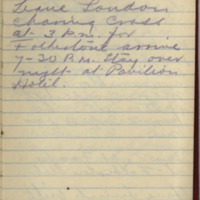 Leave London
Charing Cross
at 3 P.m. for
Folkestone arrive
7-20 P.m. Stay over
night at Pavilion
Hotel